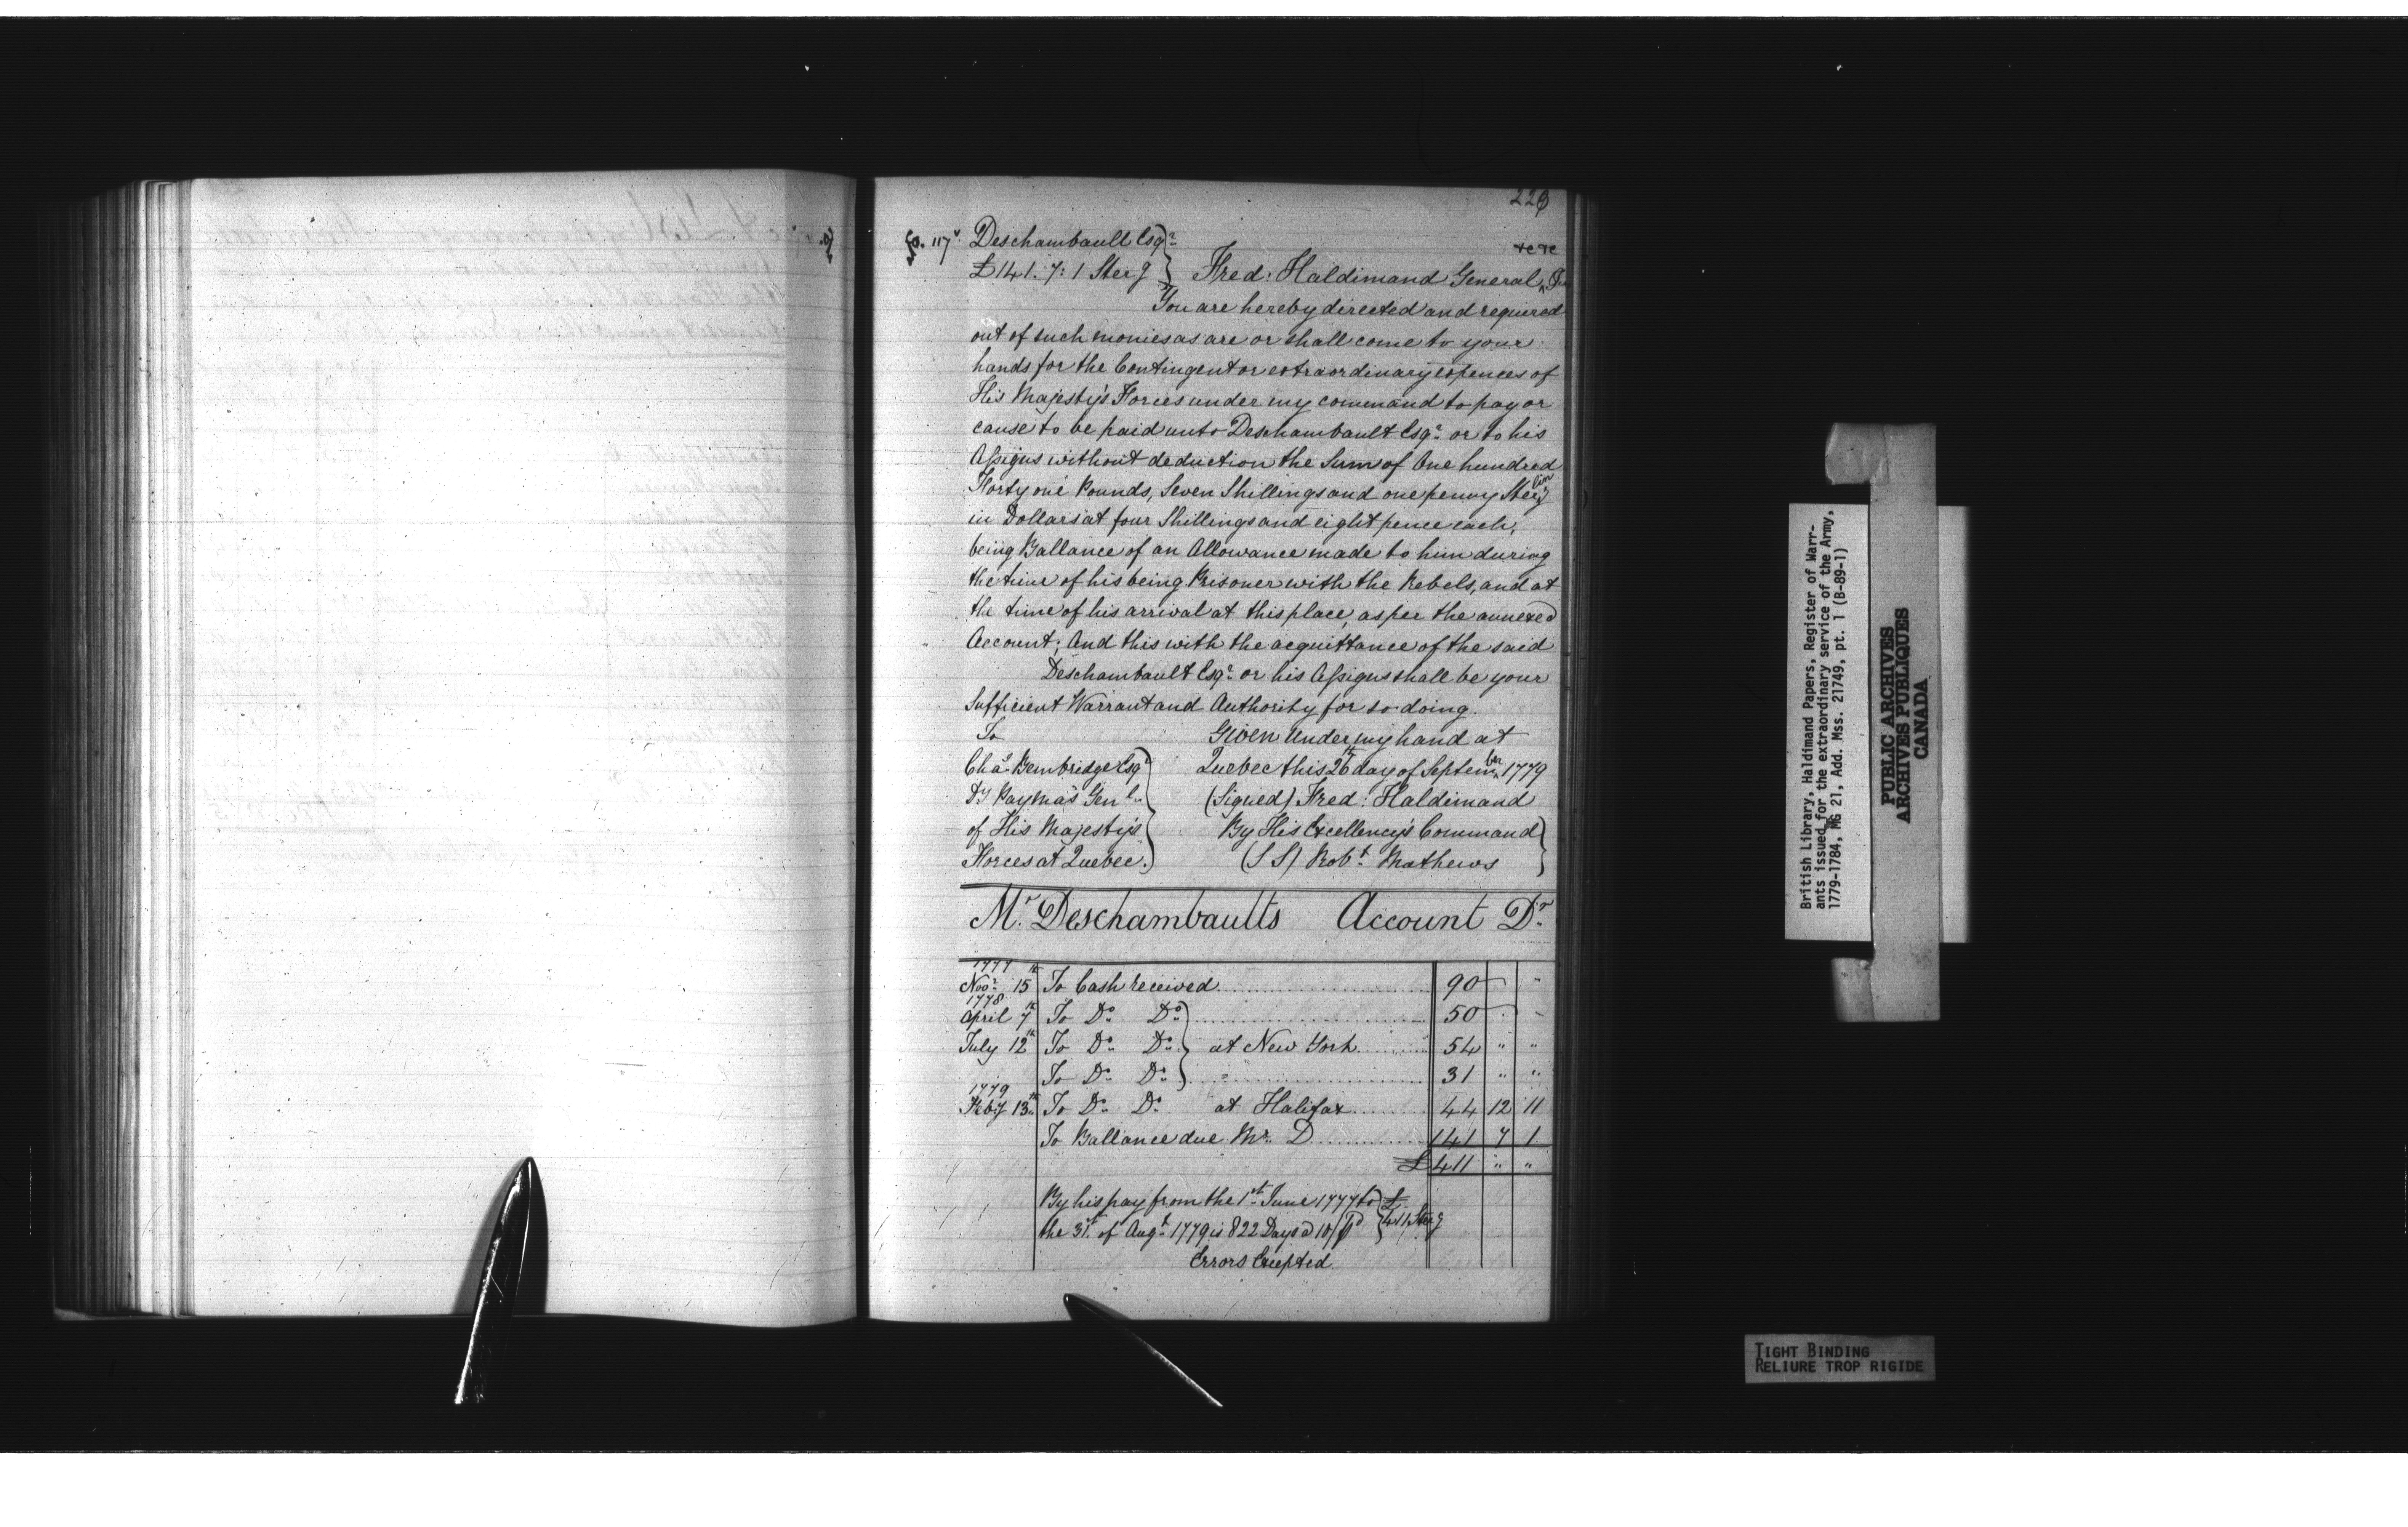 fo. 117v. Deschambault Esqr.
£141. 7: 1 Sterg } Fred: Haldimand General &c &c
You are hereby directed and required
out of such monies as are or shall come to your
hands for the Contingent or extraordinary expences of
His Majesty's Forces under my command to pay or
cause to be paid unto Deschambault Esqr. or to his
Assigns without deduction the Sum of One hundred
Forty one Pounds, Seven Shillings and one penny Sterling
in Dollars at four Shillings and eight pence each,
being Ballance of an Allowance made to him during
the time of his being Prisoner with the Rebels, and at
the time of his arrival at this place, as per the annexed
Account; And this with the acquittance of the said
Deschambault Esqr. or his Assigns shall be your
Sufficient Warrant and Authority for so doing.
To Given Under my hand at
Chas. Bembridge Esqr. Quebec this 26th day of September 1779
Dy Payma's Genl. (Signed) Fred: Haldimand
of His Majesty's By His Excellency's Command
Forces at Quebec. (S S) Robt. Mathews
Mr. Deschambaults Account Dr.
1777
Novr. 15th To Cash received 90 " "
1778
April 7th To Do. Do. 50 " "
July 12th To Do. Do. at New York 54 " "
To Do. Do. " 31 " "
1779
Feby 13th To Do. Do. at Halifax 44 12 11
To Ballance due Mr. D 141 7 1
£ 411 " "
By his pay from the 1st. June 1777 to £
the 31st. of Augt. 1779 is 822 Days @ 10/ Pd 411 Sterg
Errors Excepted
British Library, Haldimand Papers, Register of Warr-
ants issued for the extraordinary service of the Army,
1779-1784, MG 21, Add. Mss. 21749, pt. 1 (B-89-1)
PUBLIC ARCHIVES
ARCHIVES PUBLIQUES
CANADA
TIGHT BINDING
RELIURE TROP RIGIDE